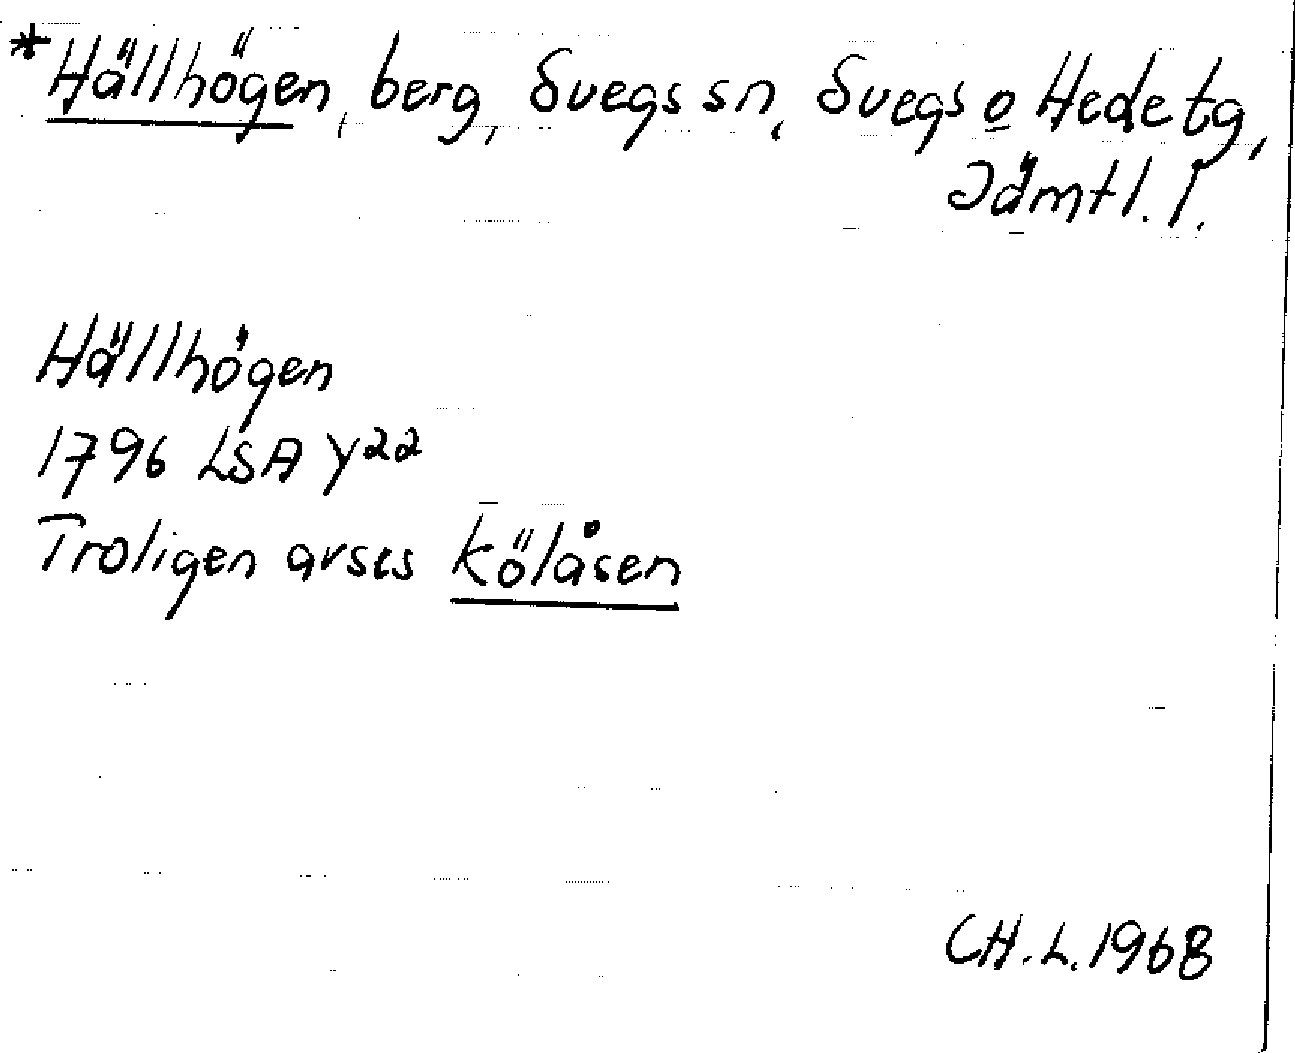 *Hällhögen, berg, Svegs sn, Svegs o Hede tg,
Jämtl. l.
Hällhögen
1796 LSA Y22
Troligen avses Kölåsen
CH. L. 1968